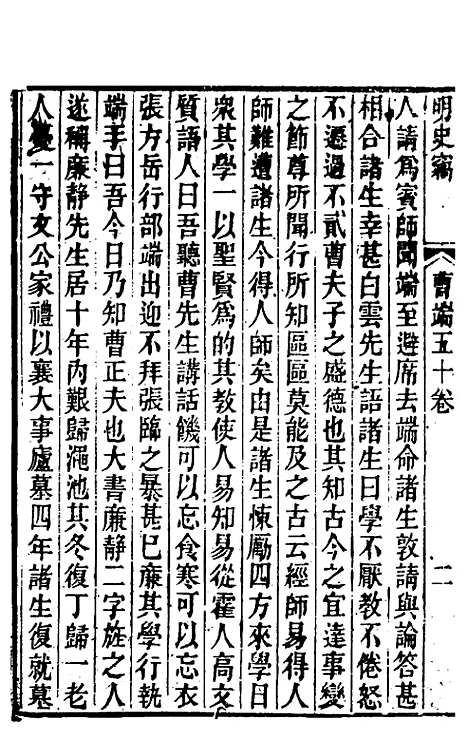 明史竊 曹端五十卷 二
人請為賓師聞端至避席去端命諸生敦請與論答甚
相合諸生幸甚白雲先生語諸生曰學不厭教不倦怒
不遷過不貳曹夫子之盛德也其知古今之宜達事變
之節尊所聞行所知區區莫能及之古云經師易得人
師難遭諸生今得人師矣由是諸生悚勵四方來學日
衆其學一以聖賢為的其教使人易知易從霍人高文
質語人曰吾聽曹先生講話饑可以忘食寒可以忘衣
張方岳行部端出迎不拜張臨之暴甚巳廉其學行執
端手曰吾今日乃知曹正夫也大書廉静二字旌之人
遂稱廉静先生居十年內艱歸澠池其冬復丁歸一老
人憂一守文公家禮以襄大事廬墓四年諸生復就墓